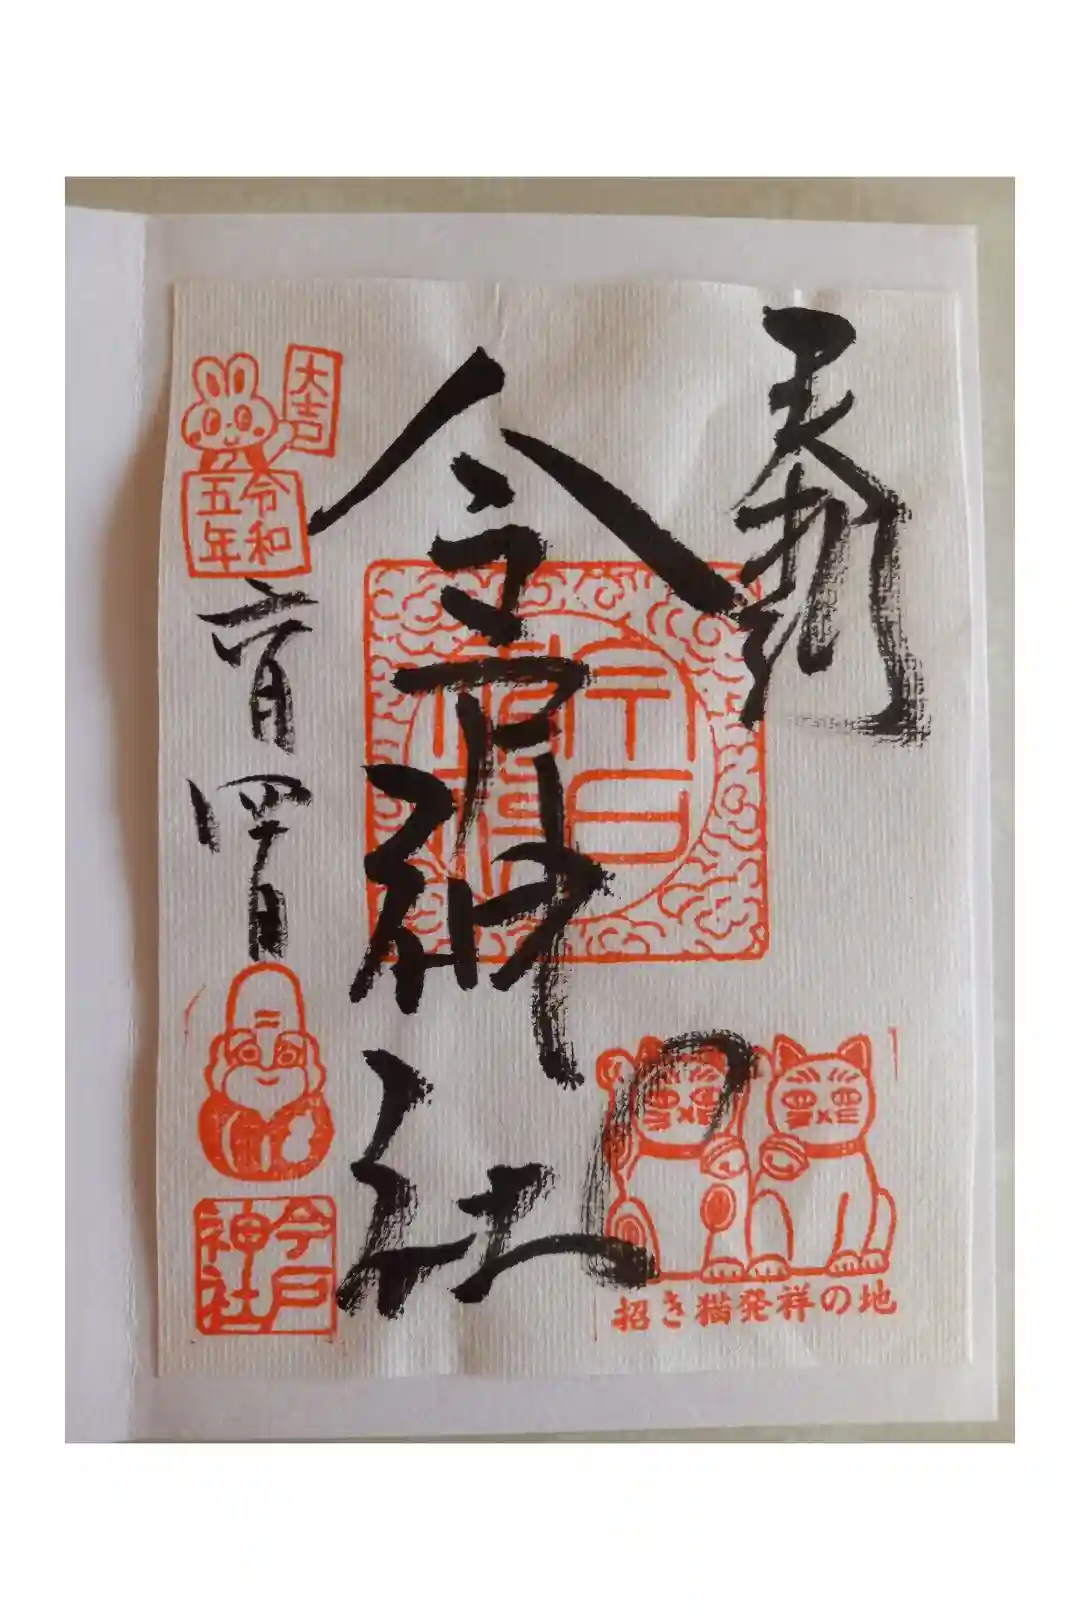 奉拝
今戸神社
大吉
令和
五年
六月
四日
今戸
神社
招き猫発祥の地